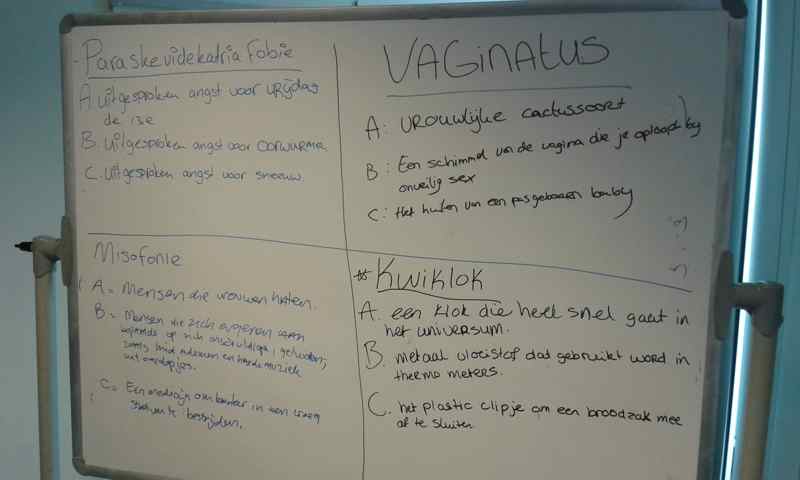 Paraskevidekatria Fobie
A. uitgesproken angst voor vrijdag
de 13e
B. Uitgesproken angst voor OORWURMEN
C. Uitgesproken angst voor sneeuw.
VAGINATUS
A: vrouwlijke cactussoort
B: Een schimmel van de vagina die je oploopt bij
onveilig sex
C: Het huilen van een pasgeboren baby
Misofonie
A = Mensen die vrouwen haten.
B = Mensen die zich ergeren aan
op zich onschuldige geluiden,
zoals hard ademen en harde muziek
uit oordopjes.
C = Een medicijn om kanker in een vroeg
stadium te bestrijden.
Kwiklok
A. een klok die heel snel gaat in
het universum.
B. metaal vloeistof dat gebruikt word in
thermo meters.
C. het plastic clipje om een broodzak mee
af te sluiten.